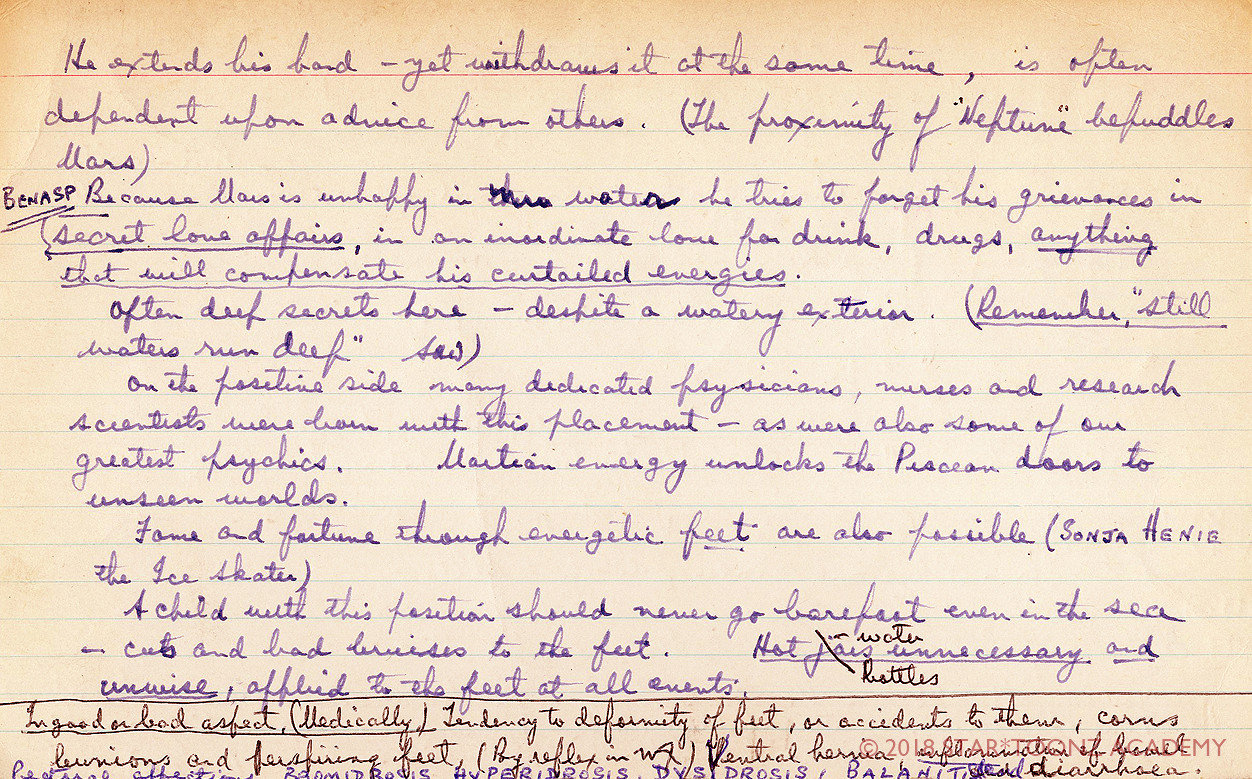 He extends his hand – yet withdraws it at the same time, is often
dependent upon advice from others. (The proximity of "Neptune" befuddles
Mars)
BENASP Because Mars is unhappy in water he tries to forget his grievances in
(secret love affairs, in an inordinate love for drink, drugs, anything
that will compensate his curtailed energies.
Often deep secrets here – despite a watery exterior. (Remember, "still
waters run deep")
On the positive side many dedicated psysicians, nurses and research
scientists were born with this placement – as were also some of our
greatest psychics. Martian energy unlocks the Piscean doors to
unseen worlds.
Fame and fortune through energetic feet are also possible (SONJA HENIE
the Ice skater)
A child with this position should never go barefoot even in the sea
– cuts and bad bruises to the feet. Hot jars – water bottles unnecessary and
unwise, applied to the feet at all events.
In good or bad aspect. (Medically) Tendency to deformity of feet, or accidents to them, corns
bunions and perspiring feet, (By reflex in Ventral hernia, inflammation of bowel
diarrhoea.
BROMIDROSIS HYPERIDROSIS, DYSIDROSIS,
© 2018 STAR★FRONT ACADEMY